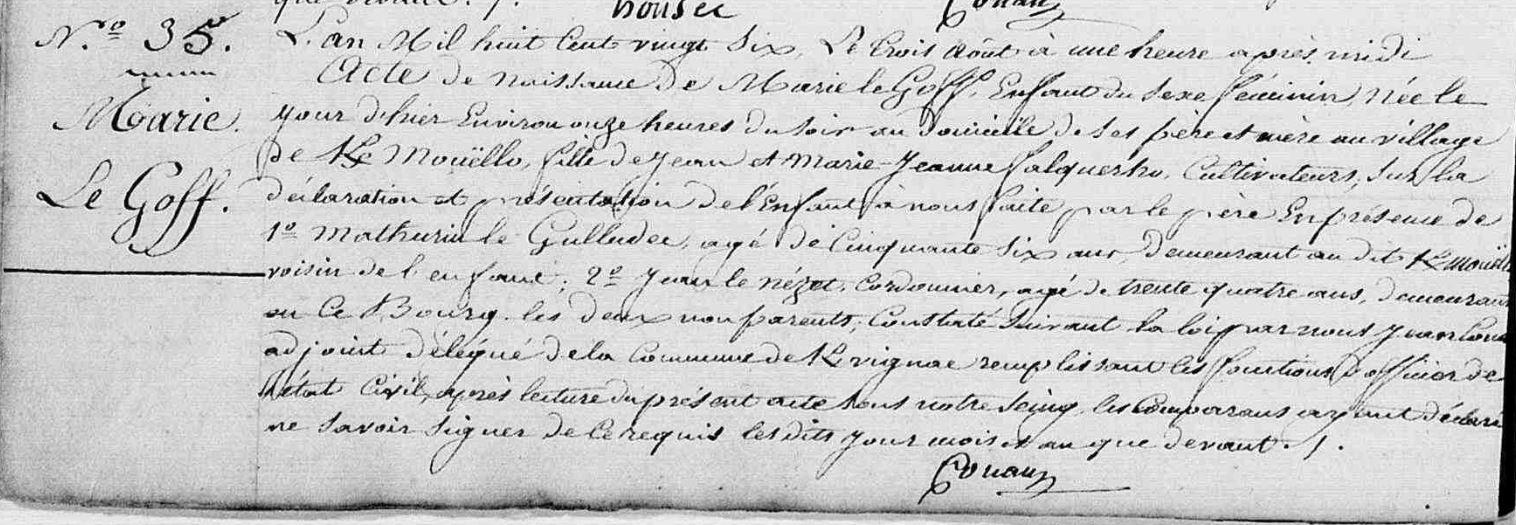 N.º 35.
Marie
Le Goff.
L'an Mil huit Cent vingt Six, Le trois Août à une heure après midi
Acte de naissance de Marie le Goff, Enfant du Sexe féminin, née le
jour d'hier Environ onze heures du soir au domicile de ses père et mère au village
de Kmouëllo, fille de Jean et Marie-Jeanne falquerho, Cultivateurs, sur la
déclaration et présentation de l'Enfant à nous faite par le père En présence de
1º Mathurin le Gulludec, agé de Cinquante six ans, demeurant au dit Kmouëllo
voisin de l'enfant; 2º Jean le nézet, Cordonnier, agé de trente quatre ans, demeurant
en Ce Bourg. les deux non parents; Constaté suivant la loi par nous Jean Conan
adjoint délégué de la Commune de Kvignac remplissant les fonctions d'officier de
l'état Civil, après lecture du présent acte sous notre seing, les Comparans ayant déclaré
ne savoir signer de ce requis les dits jour mois et an que devant ./.
Conan